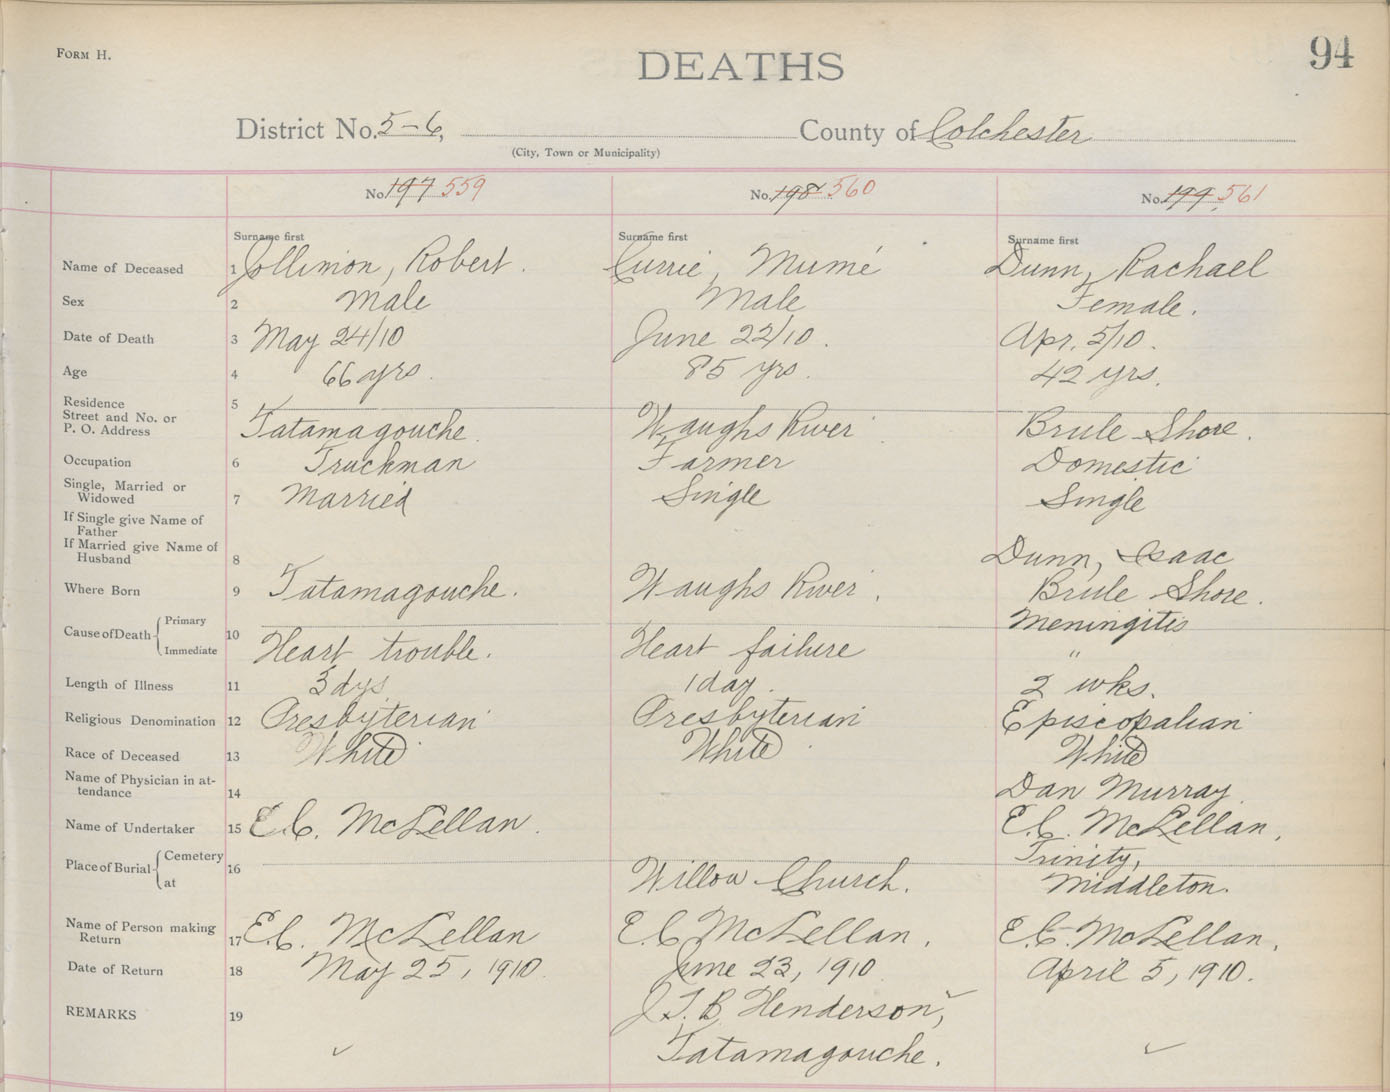 FORM H.
94
DEATHS
District No. 5-6, County of Colchester
(City, Town or Municipality)
No. 197 559 No. 198 560 No. 199 561
Surname first Surname first Surname first
Name of Deceased 1 Jollimon, Robert. Currie, Mumé Dunn, Rachael
Sex 2 Male Male Female.
Date of Death 3 May 24/10 June 22/10. Apr. 5/10.
Age 4 66 yrs. 85 yrs. 42 yrs.
Residence 5
Street and No. or
P. O. Address Tatamagouche. Waughs River Brule Shore.
Occupation 6 Truckman Farmer Domestic
Single, Married or
Widowed 7 Married Single Single
If Single give Name of
Father
If Married give Name of
Husband 8 Dunn, Isaac
Where Born 9 Tatamagouche. Waughs River. Brule Shore.
Cause of Death Primary 10 Meningitis
Immediate Heart trouble. Heart failure "
Length of Illness 11 3 dys. 1 day. 2 wks.
Religious Denomination 12 Presbyterian Presbyterian Episcopalian
Race of Deceased 13 White White White
Name of Physician in at-
tendance 14 Dan Murray.
Name of Undertaker 15 E.C. McLellan. E.C. McLellan.
Place of Burial Cemetery 16 Trinity,
at Willow Church. Middleton.
Name of Person making
Return 17 E.C. McLellan E.C McLellan. E.C. McLellan.
Date of Return 18 May 25, 1910. June 23, 1910 April 5, 1910.
REMARKS 19 J.T.B. Henderson,
Tatamagouche.